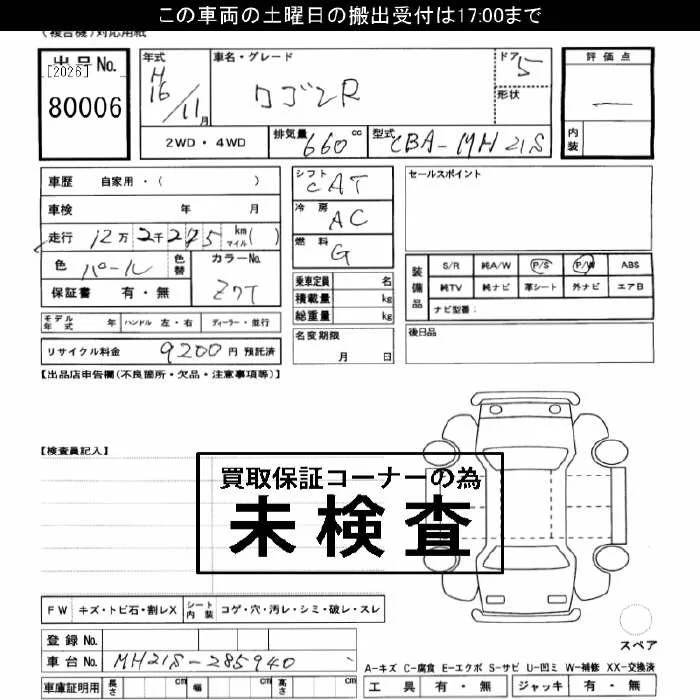 この車両の土曜日の搬出受付は17:00まで
(複合機)対応用紙
出品No.
[2026]
80006
年式
H16/11月
車名・グレード
ワゴンR
ドア
5
形状
評価点
—
内装
2WD・4WD
排気量
660cc
型式
CBA-MH21S
車歴 自家用・( )
車検 年 月
走行 12万2千295km マイル( )
色 パール 色替 カラーNo. Z7T
保証書 有・無
シフト
CAT
冷房
AC
燃料
G
乗車定員 名
積載量 kg
総重量 kg
セールスポイント
装備品
S/R 純A/W P/S P/W ABS
純TV 純ナビ 革シート 外ナビ エアB
ナビ型番:
モデル年式 年 ハンドル 左・右 ディーラー・並行
リサイクル料金 9200円 預託済
名変期限
月 日
後日品
【出品店申告欄(不良箇所・欠品・注意事項等)】
【検査員記入】
買取保証コーナーの為
未検査
FW キズ・トビ石・割レX シート内装 コゲ・穴・汚レ・シミ・破レ・スレ
登録No.
車台No. MH21S-285940
車庫証明用 長さ cm 幅 cm 高さ cm
スペア
A-キズ C-腐食 E-エクボ S-サビ U-凹ミ W-補修 XX-交換済
工具 有・無 ジャッキ 有・無